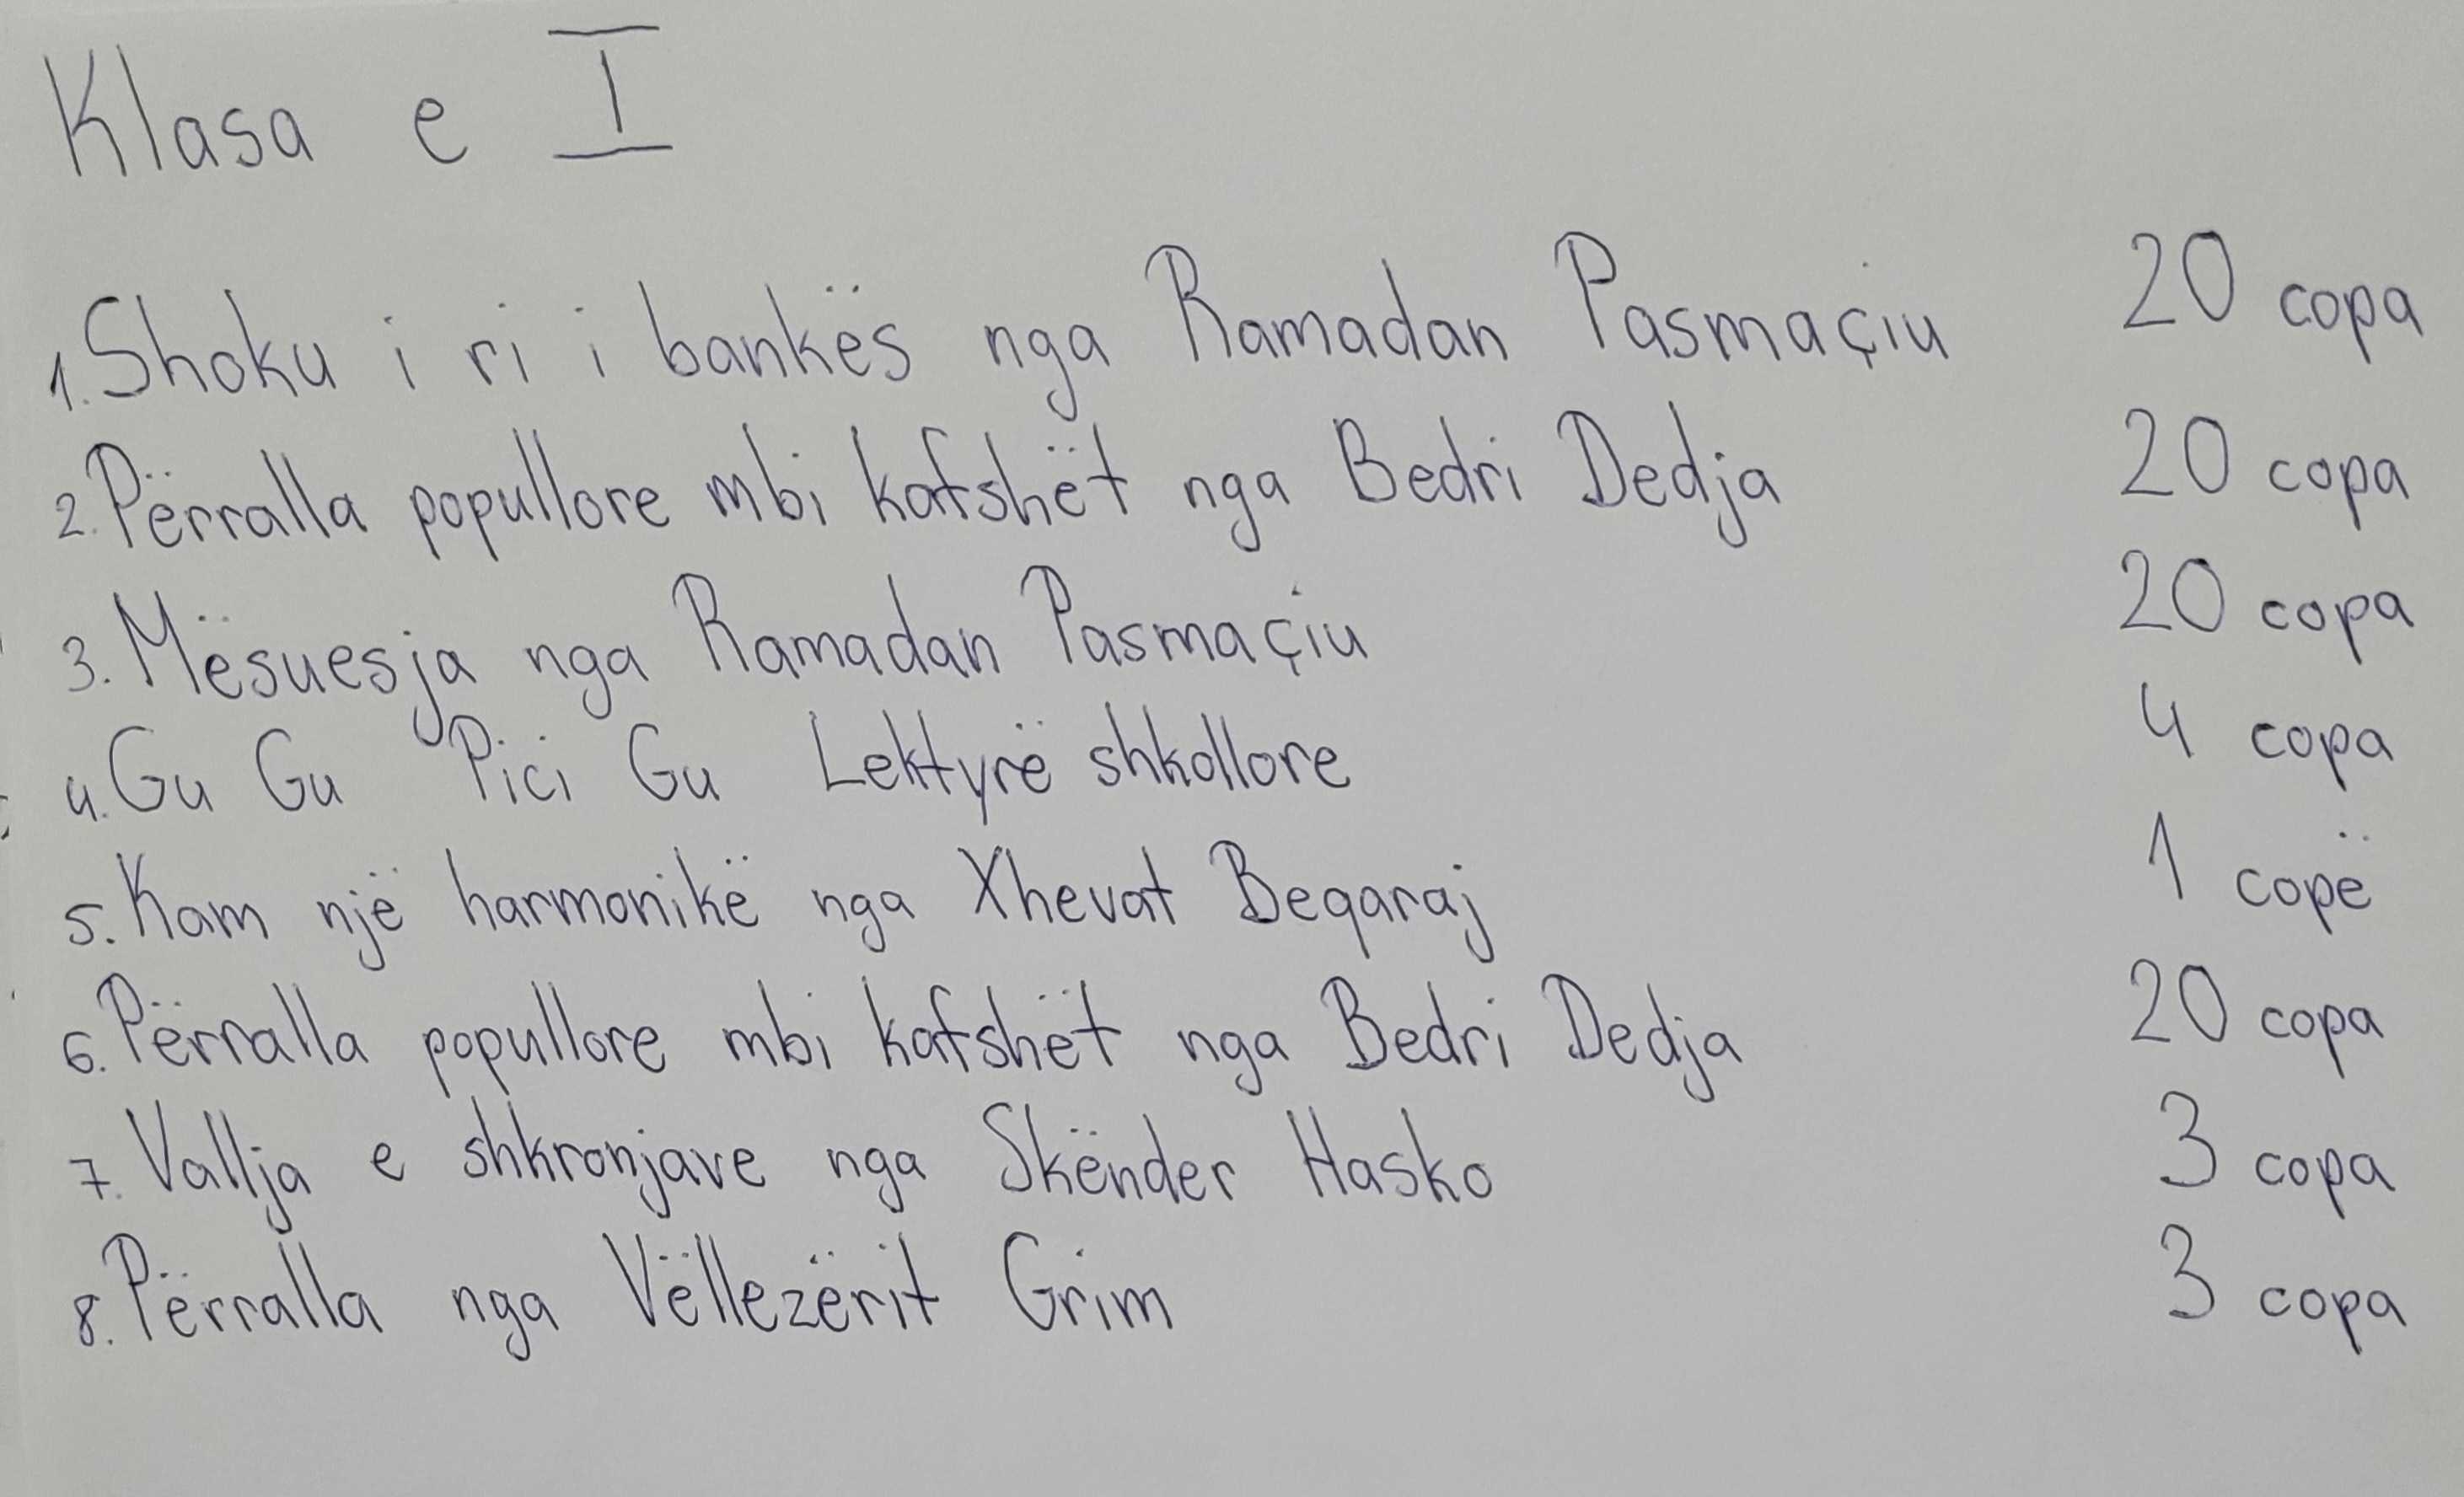 Klasa e I
1. Shoku i ri i bankës nga Ramadan Pasmaçiu 20 copa
2. Përralla popullore mbi kafshët nga Bedri Dedja 20 copa
3. Mësuesja nga Ramadan Pasmaçiu 20 copa
4. Gu Gu Pici Gu Lektyrë shkollore 4 copa
5. Kam një harmonikë nga Xhevat Beqaraj 1 copë
6. Përralla popullore mbi kafshët nga Bedri Dedja 20 copa
7. Vallja e shkronjave nga Skënder Hasko 3 copa
8. Përralla nga Vëllezërit Grim 3 copa